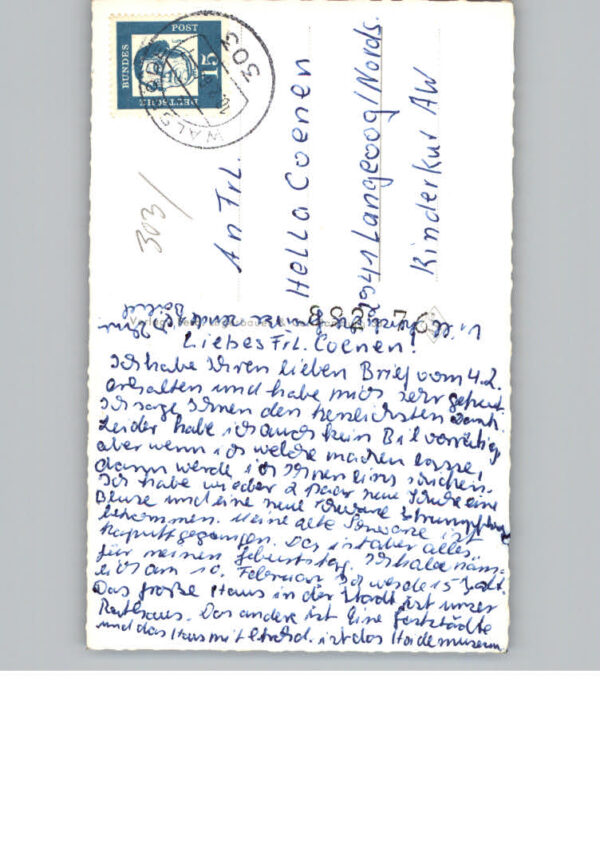 DEUTSCHE
BUNDES
POST
15
303
WALSRODE
303/
An Frl.
Hella Coenen
2941 Langeoog/Nords.
Kinderkur AW
Liebes Frl. Coenen!
Ich habe Ihren lieben Brief vom 4.2.
erhalten und habe mich sehr gefreut.
Ich sage Ihnen den herzlichsten Dank.
Leider habe ich auch kein Bil vorrätig
aber wenn ich welche machen lasse,
dann werde ich Ihnen eins schicken.
Ich habe wieder 2 Paar neue Schuhe eine
Bluse und eine neue schwarze Strumpfhose
bekommen. Meine alte Schwarze ist
kaputtgegangen. Das ist aber alles
für meinen Geburtstag. Ich habe näm-
lich am 10. Februar. Ich werde 15 Jahre.
Das große Haus in der Stadt ist unser
Rathaus. Das andere ist eine Gaststädte
und das Haus mit ist das Heidemuseum